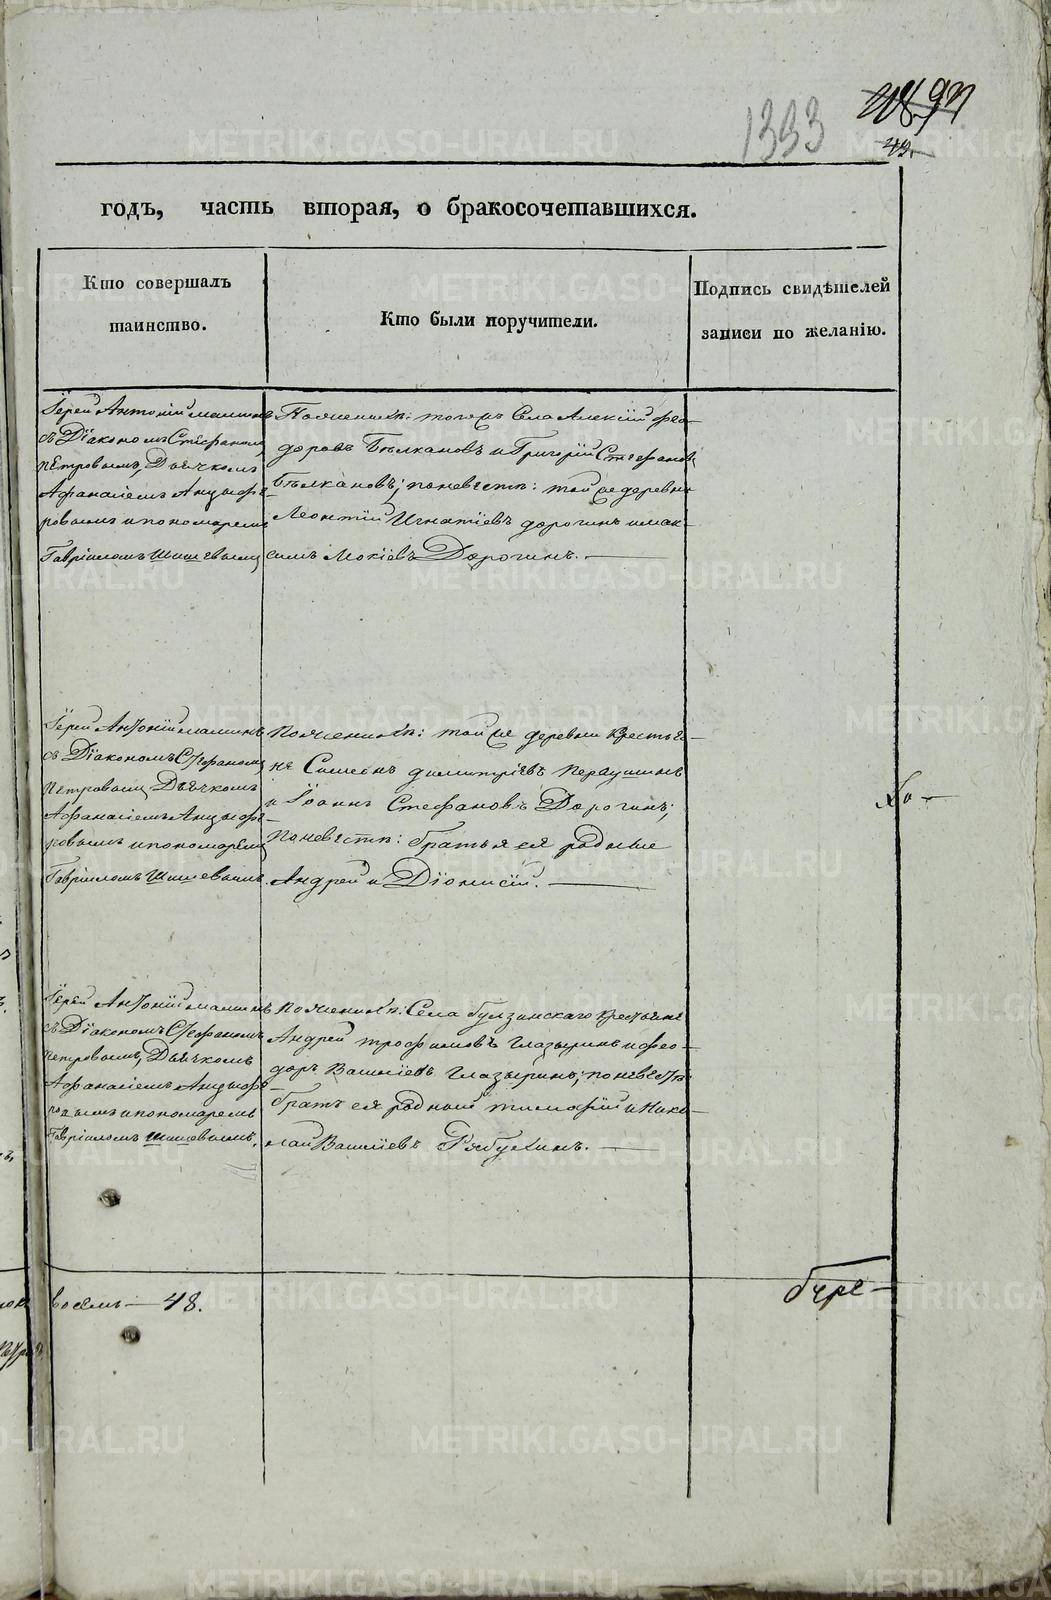 1393
49.
годъ, часть вторая, о бракосочетавшихся.
Кто совершалъ
таинство.
Кто были поручители.
Подпись свидѣтелей
записи по желанію.
Іерей Антоній Маминъ
съ Діакономъ Стефаномъ
Петровымъ, Дьячкомъ
Афанасіемъ Анцыфе-
ровымъ и пономаремъ
Гавріиломъ Шишевымъ
По женихѣ: тогоже Села Алексій Фео-
доровъ Бѣлкановъ и Григорій Стефановъ
Бѣлкановъ; по невѣстѣ: той же деревни
Леонтій Игнатіевъ Дорогинъ и Мак-
симъ Мокіевъ Дорогинъ.
Іерей Антоній Маминъ
съ Діакономъ Стефаномъ
Петровымъ Дьячкомъ
Афанасіемъ Анцыфе-
ровымъ и пономаремъ
Гавріиломъ Шишевымъ.
По женихѣ: той же деревни Крестья-
не Симеонъ Димитріевъ Первушинъ
и Іоаннъ Стефановъ Дорогинъ;
По невѣстѣ: братья ея родные
Андрей и Діонисій.
Іерей Антоній Маминъ
съ Діакономъ Стефаномъ
Петровымъ, Дьячкомъ
Афанасіемъ Анцыфе-
ровымъ и пономаремъ
Гавріиломъ Шишевымъ.
По женихѣ: Села Булзинскаго Крестьяне
Андрей Трофимовъ Глазыринъ и Фео-
доръ Василіевъ Глазыринъ; по невѣстѣ
братъ ея родный Тимофій и Нико-
лай Василіевъ Рябухинъ.
восемь — 48.
METRIKI.GASO-URAL.RU